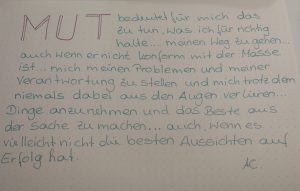 MUT bedeutet für mich das
zu tun, was ich für richtig
halte... meinen Weg zu gehen...
auch wenn er nicht konform mit der Masse
ist... mich meinen Problemen und meiner
Verantwortung zu stellen und mich trotzdem
niemals dabei aus den Augen verlieren...
Dinge anzunehmen und das Beste aus
der Sache zu machen... auch, wenn es
vielleicht nicht die besten Aussichten auf
Erfolg hat.
AC.